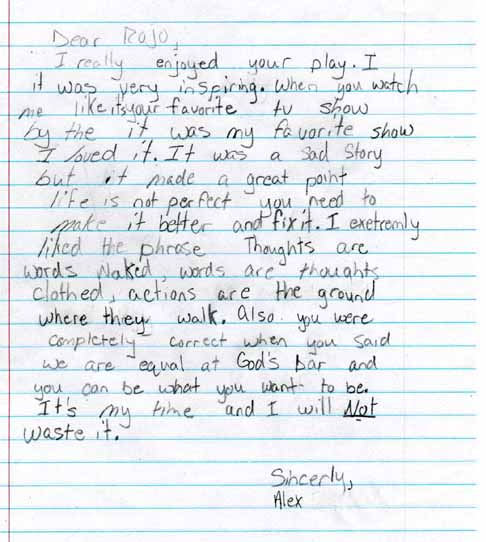 Dear Rojo,
I really enjoyed your play. I
it was very inspiring. When you watch
me like itsyour favorite tv show
by the it was my favorite show
I loved it. It was a sad story
but it made a great point
life is not perfect you need to
make it better and fix it. I exetremly
liked the phrase Thoughts are
words Naked, words are thoughts
clothed, actions are the ground
where they walk. Also you were
completely correct when you said
we are equal at God's bar and
you can be what you want to be.
It's my time and I will Not
waste it.
Sincerly,
Alex